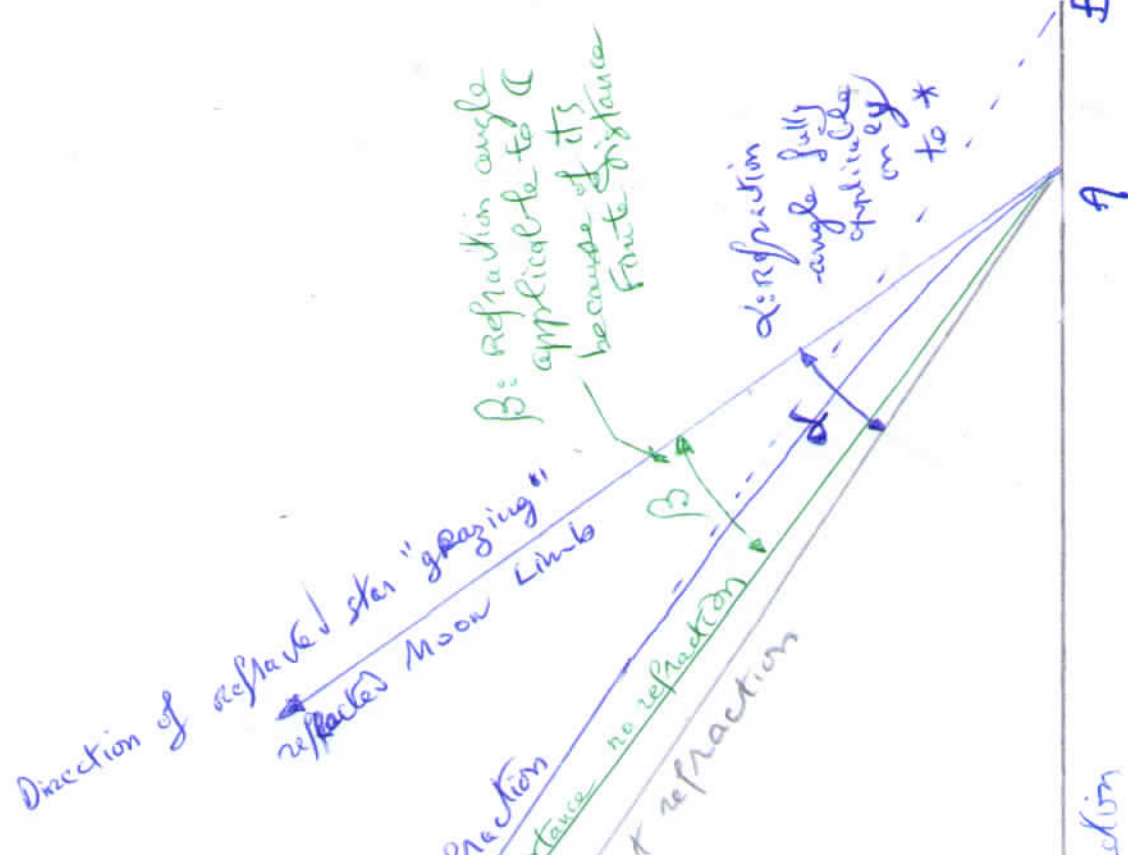 Direction of refracted star "grazing"
refracted Moon Limb
β: Refraction angle
applicable to ☾
because of its
Finite distance
α: Refraction
angle fully
applicable
only
to *
β
α
no refraction
refraction